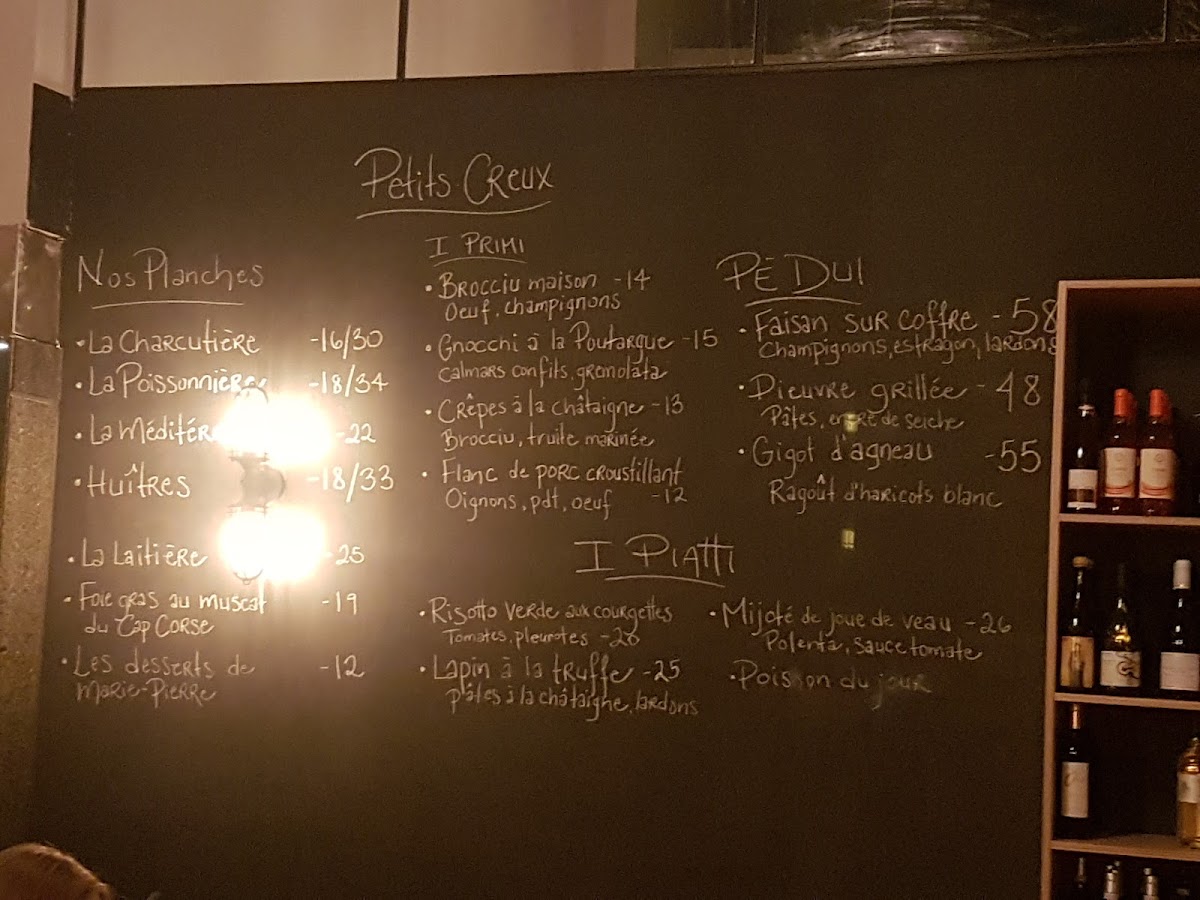 Petits Creux
Nos Planches
• La Charcutière -16/30
• La Poissonnière -18/34
• La Méditér -22
• Huîtres -18/33
• La Laitière -25
- Foie gras au muscat -19
du Cap Corse
• Les desserts de -12
Marie-Pierre
I Primi
• Brocciu maison -14
Oeuf, champignons
• Gnocchi à la Poutargue -15
calmars confits, gremolata
• Crêpes à la châtaigne -13
Brocciu, truite marinée
• Flanc de porc croustillant
Oignons, pdt, oeuf -12
Pè Dui
• Faisan sur coffre -58
Champignons, estragon, lardons
• Pieuvre grillée -48
Pâtes, encre de seiche
• Gigot d'agneau -55
Ragoût d'haricots blanc
I Piatti
• Risotto verde aux courgettes
Tomates, pleurotes
• Lapin à la truffe -25
pâtes à la châtaigne, lardons
• Mijoté de joue de veau -26
Polenta, sauce tomate
• Poisson du jour